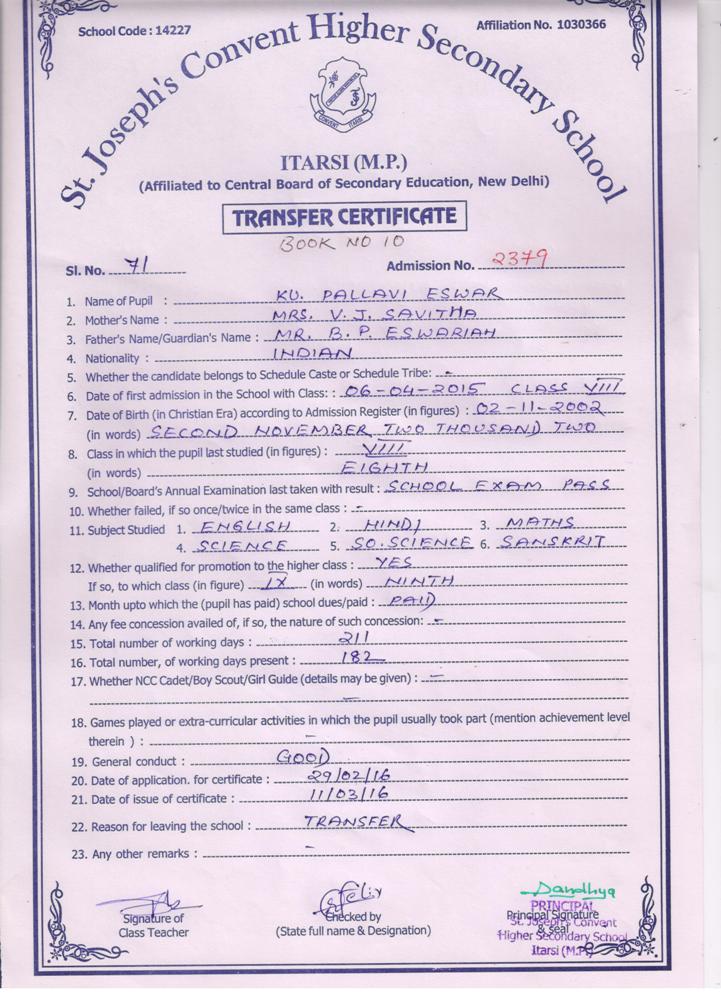 School Code : 14227
Affiliation No. 1030366
St. Joseph's Convent Higher Secondary School
CONVENT ITARSI
ITARSI (M.P.)
(Affiliated to Central Board of Secondary Education, New Delhi)
TRANSFER CERTIFICATE
BOOK NO 10
Sl. No. 71 Admission No. 2379
1. Name of Pupil : KU. PALLAVI ESWAR
2. Mother's Name : MRS. V. J. SAVITHA
3. Father's Name/Guardian's Name : MR. B. P. ESWARIAH
4. Nationality : INDIAN
5. Whether the candidate belongs to Schedule Caste or Schedule Tribe: -
6. Date of first admission in the School with Class: : 06-04-2015 CLASS VIII
7. Date of Birth (in Christian Era) according to Admission Register (in figures) : 02-11-2002
(in words) SECOND NOVEMBER TWO THOUSAND TWO
8. Class in which the pupil last studied (in figures) : VIII
(in words) EIGHTH
9. School/Board's Annual Examination last taken with result : SCHOOL EXAM PASS
10. Whether failed, if so once/twice in the same class : -
11. Subject Studied 1. ENGLISH 2. HINDI 3. MATHS
4. SCIENCE 5. SO.SCIENCE 6. SANSKRIT
12. Whether qualified for promotion to the higher class : YES
If so, to which class (in figure) IX (in words) NINTH
13. Month upto which the (pupil has paid) school dues/paid : PAID
14. Any fee concession availed of, if so, the nature of such concession: -
15. Total number of working days : 211
16. Total number, of working days present : 182
17. Whether NCC Cadet/Boy Scout/Girl Guide (details may be given) : -
-
18. Games played or extra-curricular activities in which the pupil usually took part (mention achievement level
therein ) : -
19. General conduct : GOOD
20. Date of application. for certificate : 29/02/16
21. Date of issue of certificate : 11/03/16
22. Reason for leaving the school : TRANSFER
23. Any other remarks : -
Signature of
Class Teacher
Checked by
(State full name & Designation)
Sandhya
PRINCIPAL
Principal Signature
& seal
St. Joseph's Convent
Higher Secondary School
Itarsi (M.P.)